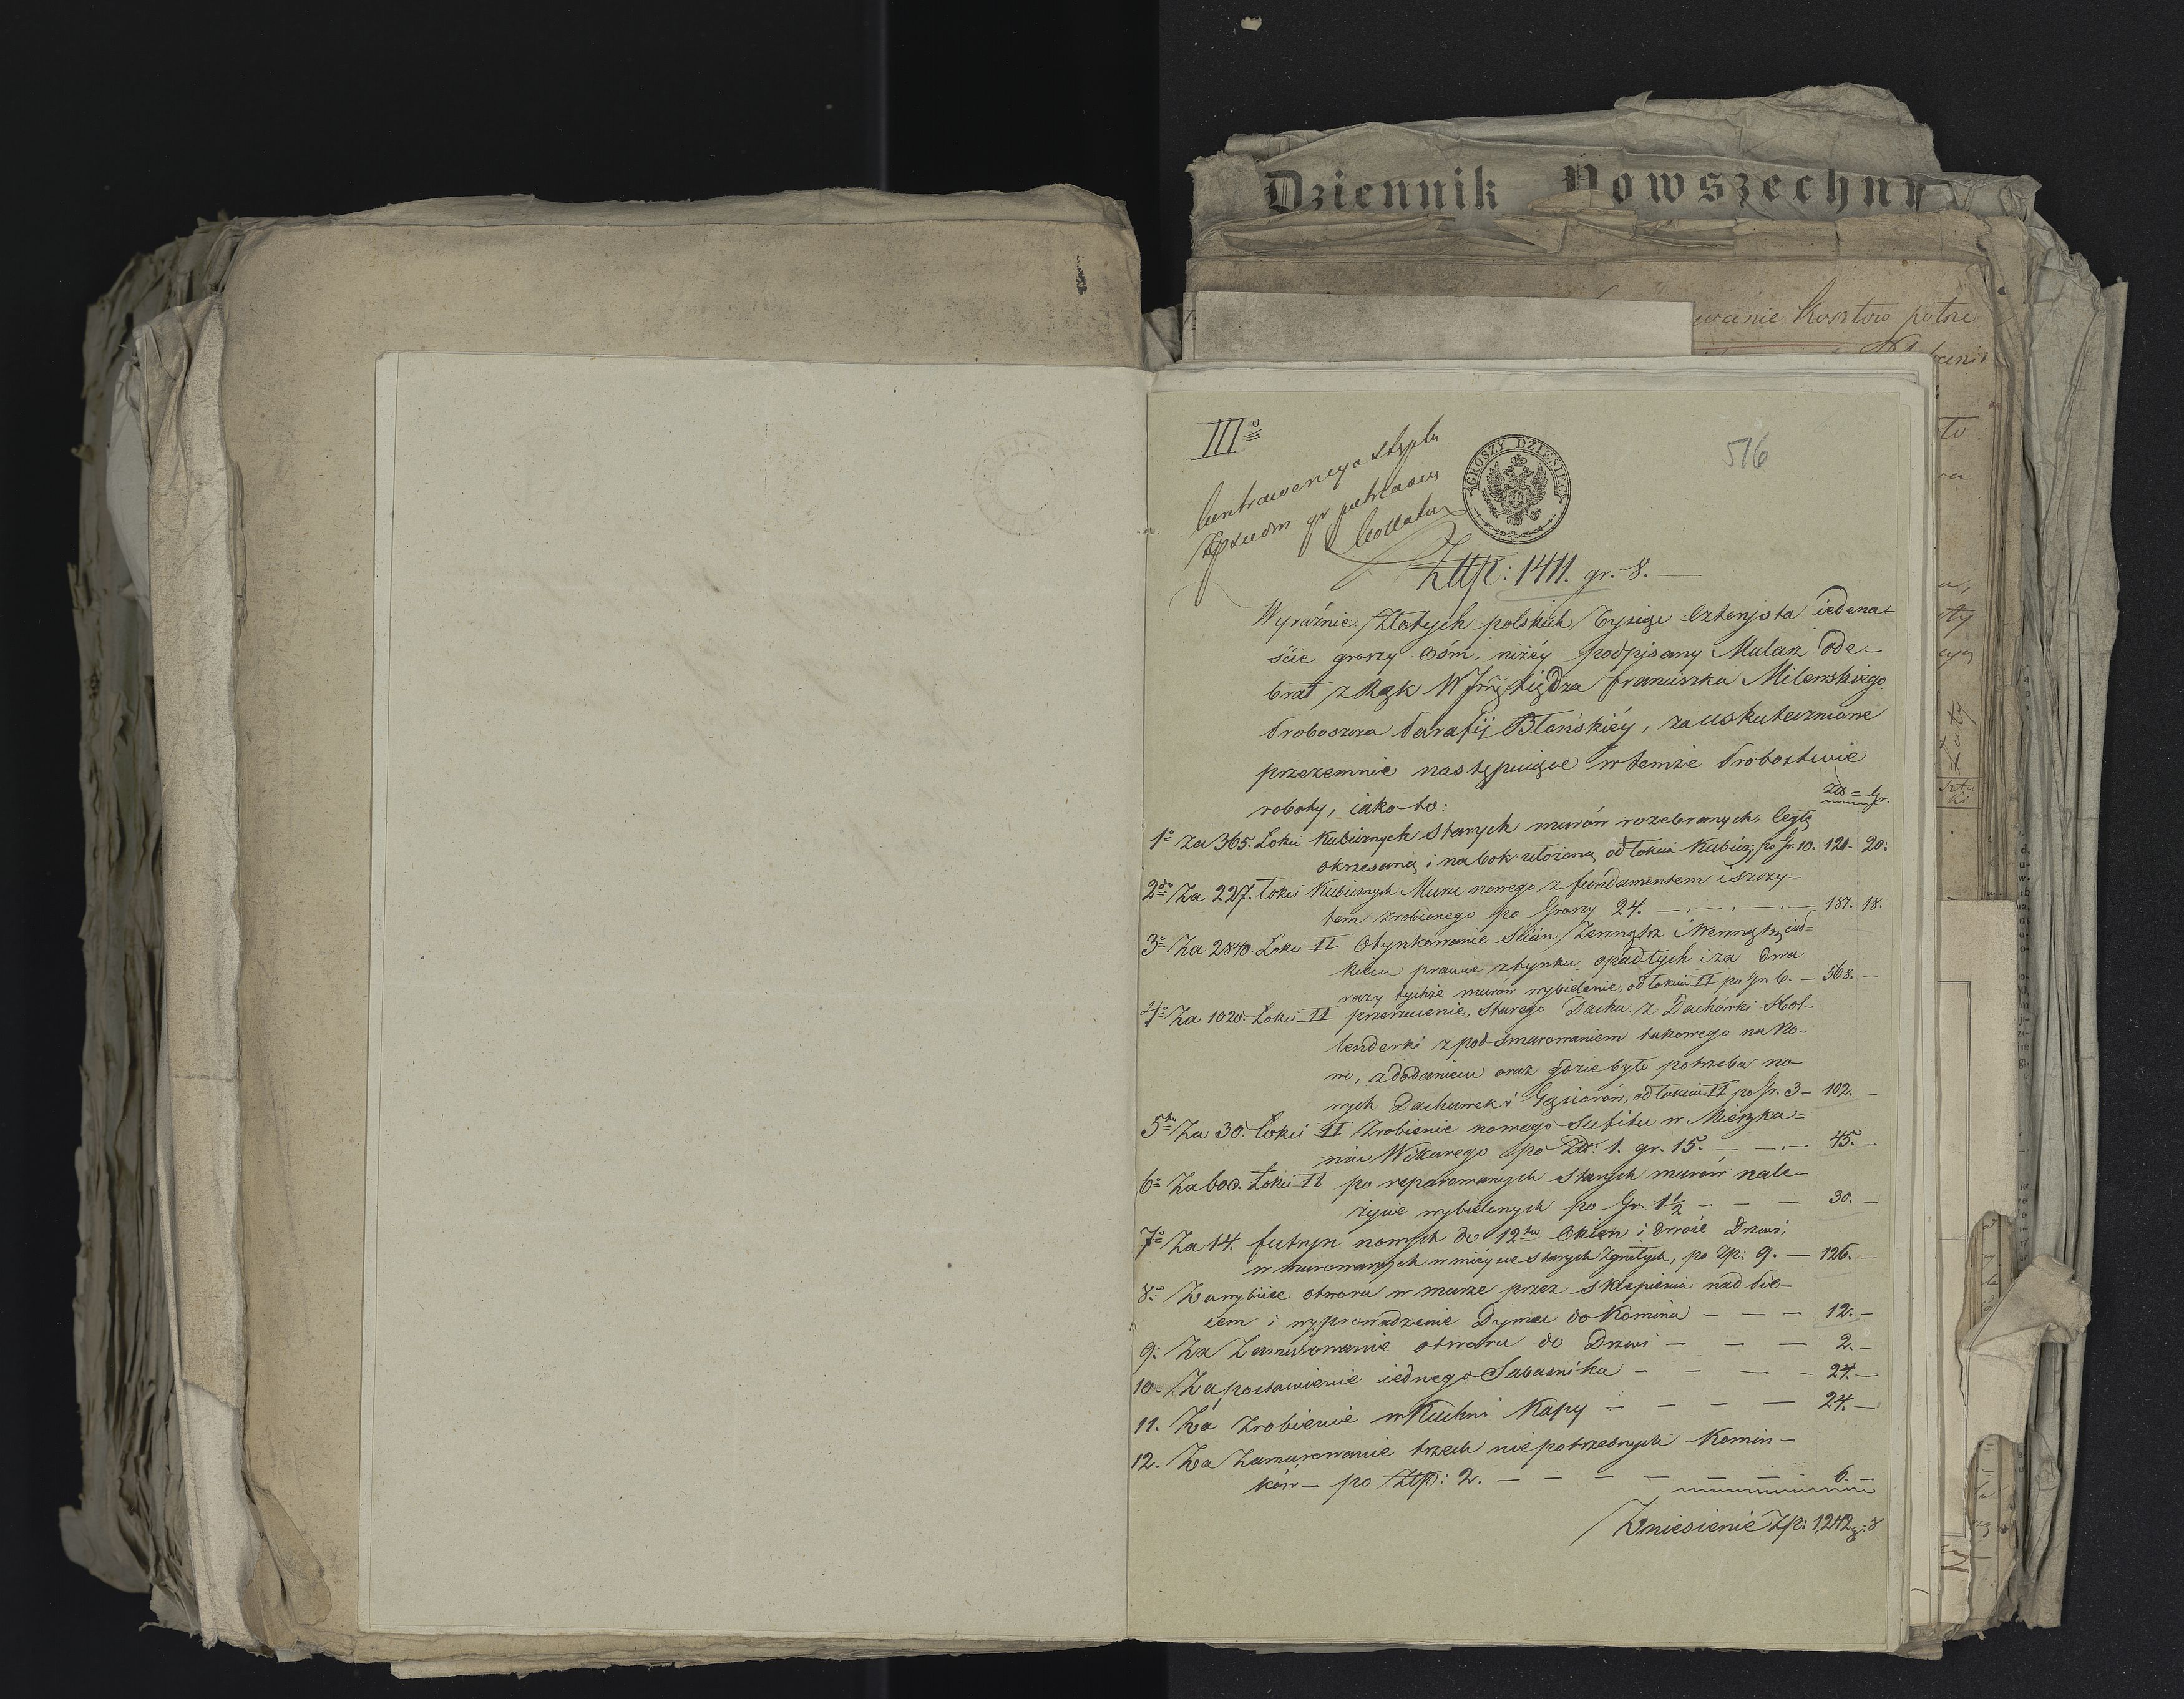 Dziennik Powszechny
wanie Kosztow potrze
III°
516
Contrawencya stępla
gr
Collatum
GROSZY DZIESIĘĆ
Zttp: 1411. gr. 8.
Wyraźnie Złotych polskich Tysiąc Czterysta iedena-
ście groszy Ośm, niżéy podpisany Mularz ode-
brał z Rąk W Jmć Xiędza Franciszka Milewskiego
Proboszcza Parafij Błońskiéy, za uskutecznione
przezemnie następuiące w temże Probostwie
roboty, iako to:
Złt = Gr.
1° Za 365. Łokci Kubicznych Starych murów rozebranych, Cegłę
okrzesaną i na bok ułożoną od łokcia Kubicz: po Gr. 10. 121. 20.
2do Za 227. Łokci Kubicznych Muru nowego z fundamentem i szczy-
tem zrobionego po Groszy 24. — . — . — . — 181. 18.
3° Za 2840. Łokci II Otynkowanie Ścian Zewnątrz i Wewnątrz cał-
kiem prawie z tynku opadłych i za dwa
razy tychże murów wybielenie, od łokcia II po Gr. 6. — 568. —
4° Za 1020. Łokci II przerzucenie, Starego Dachu, z Dachówki Hol-
lenderki z podsmarowaniem takowego na No-
wo, z dodaniem oraz gdzie było potrzeba no-
wych Dachówek i Gąsiorów, od łokcia II po Gr. 3 — 102. —
5to Za 30. Łokci II Zrobienie nowego Sufitu w Mieszka=
niu Wikarego po Złt: 1. gr. 15. — — . — 45. —
6° Za 600. Łokci II po reparowanych Starych murów nale-
życie wybielonych po Gr. 1½ — — — 30. —
7° Za 14. futryn nowych do 12tu Okien i dwoie Drzwi,
w murowanych w mieysce starych Zgniłych, po Zp: 9. — 126. —
8° Za wybicie otworu w murze przez Sklepienia nad Pie-
cem i wyprowadzenie Dymu do Komina — — — 12. —
9: Za Zamurowanie otworu do Drzwi — — — 2. —
10. Za postawienie iednego Sabaśnika — — — — 24. —
11. Za Zrobienie w Kuchni Kapy — — — — 24. —
12. Za Zamurowanie trzech niepotrzebnych Komin-
ków — po Zttp: 2. — — — — — — — 6. —
Zniesienie Zp: 1,242 g: 8